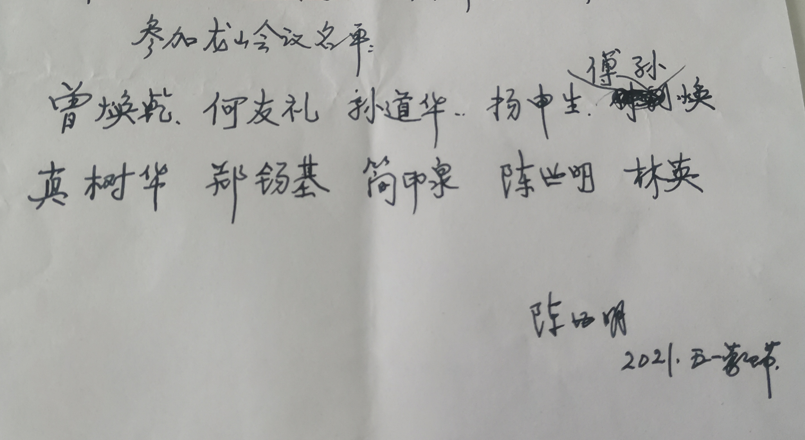 参加龙山会议名单:
曾焕乾、何友礼 孙道华.. 扬申生. 傅孙焕
真树华 郑锡基 简印泉 陈世明 林英
陈世明
2021.五一劳动节.